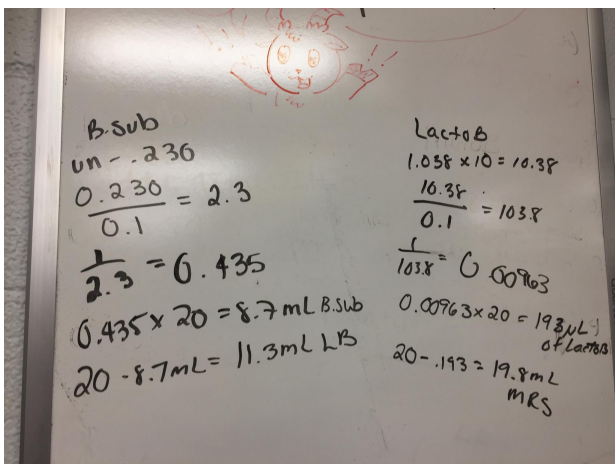 B.Sub
un - .230
0.230
0.1
= 2.3
1
2.3
= 0.435
0.435 x 20 = 8.7 mL B.Sub
20 - 8.7mL = 11.3mL LB
LactoB
1.038 x 10 = 10.38
10.38
0.1
= 103.8
1
103.8
= 0.00963
0.00963 x 20 = 193µL
of LactoB
20 - .193 = 19.8mL
MRS